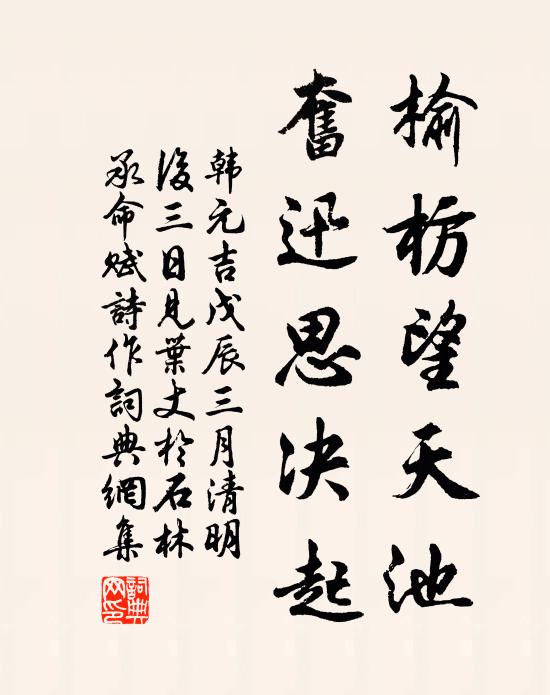 榆枋望天池
奮迅思决起
韩元吉戊辰三月清明
後三日見葉丈於石林
承命賦詩作詞典網集
詞典網印